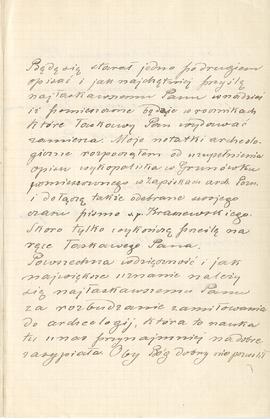 Będę się starał jedno po drugiem
opisać i jak najchętniej przyślę
najłaskawszemu Panu w nadziei
iż pomieszczone będzie w rocznikach
które Łaskawy Pan wydawać
zamierza. Moje notatki archeolo-
giczne rozpocząłem od uzupełnienia
opisu wykopaliska w Grunówku
pomieszczonego w Zapiskach arch. Pozn.
i dołączę także odebrane swojego
czasu pismo ś.p. Kraszewskiego.
Skoro tylko wykończę prześlę na
ręce Łaskawego Pana.
Powszechna wdzięczność i jak
największe uznanie należy
się najłaskawszemu Panu
za rozbudzanie zamiłowania
do archeologij, która to nauka
tu u nas przynajmniej na dobre
zasypiała Oby Bóg dobry nie